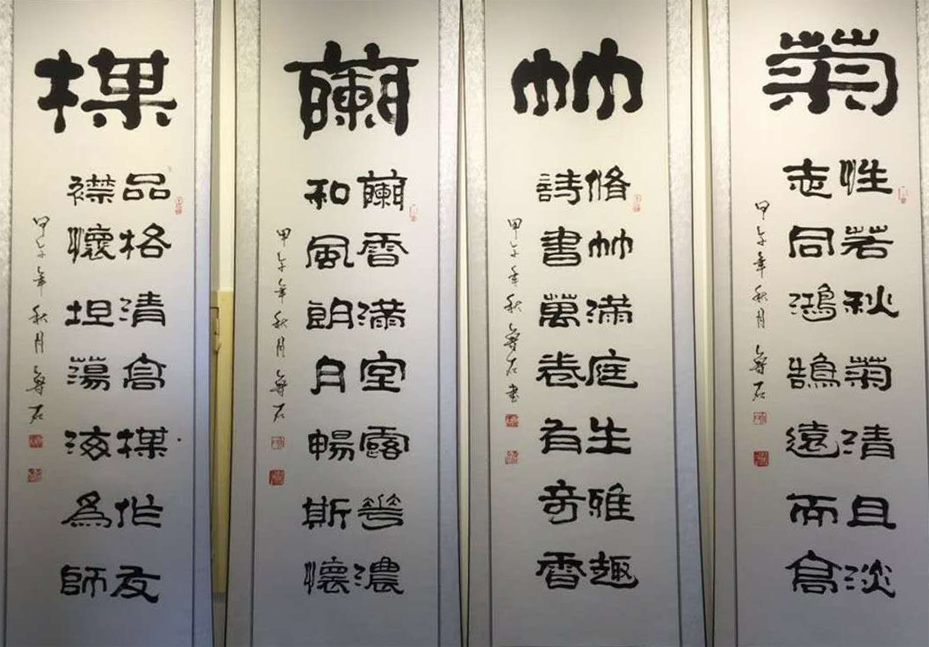 楳
品格清高楳作友
襟懷坦蕩海為師
甲午年秋月魯石
蘭
蘭香滿室露華濃
和風朗月暢斯懷
甲午年秋月魯石
竹
脩竹滿庭生雅趣
詩書萬卷有奇香
甲午年秋月魯石書
菊
性若秋菊清且淡
志同鴻鵠遠而高
甲午年秋月魯石